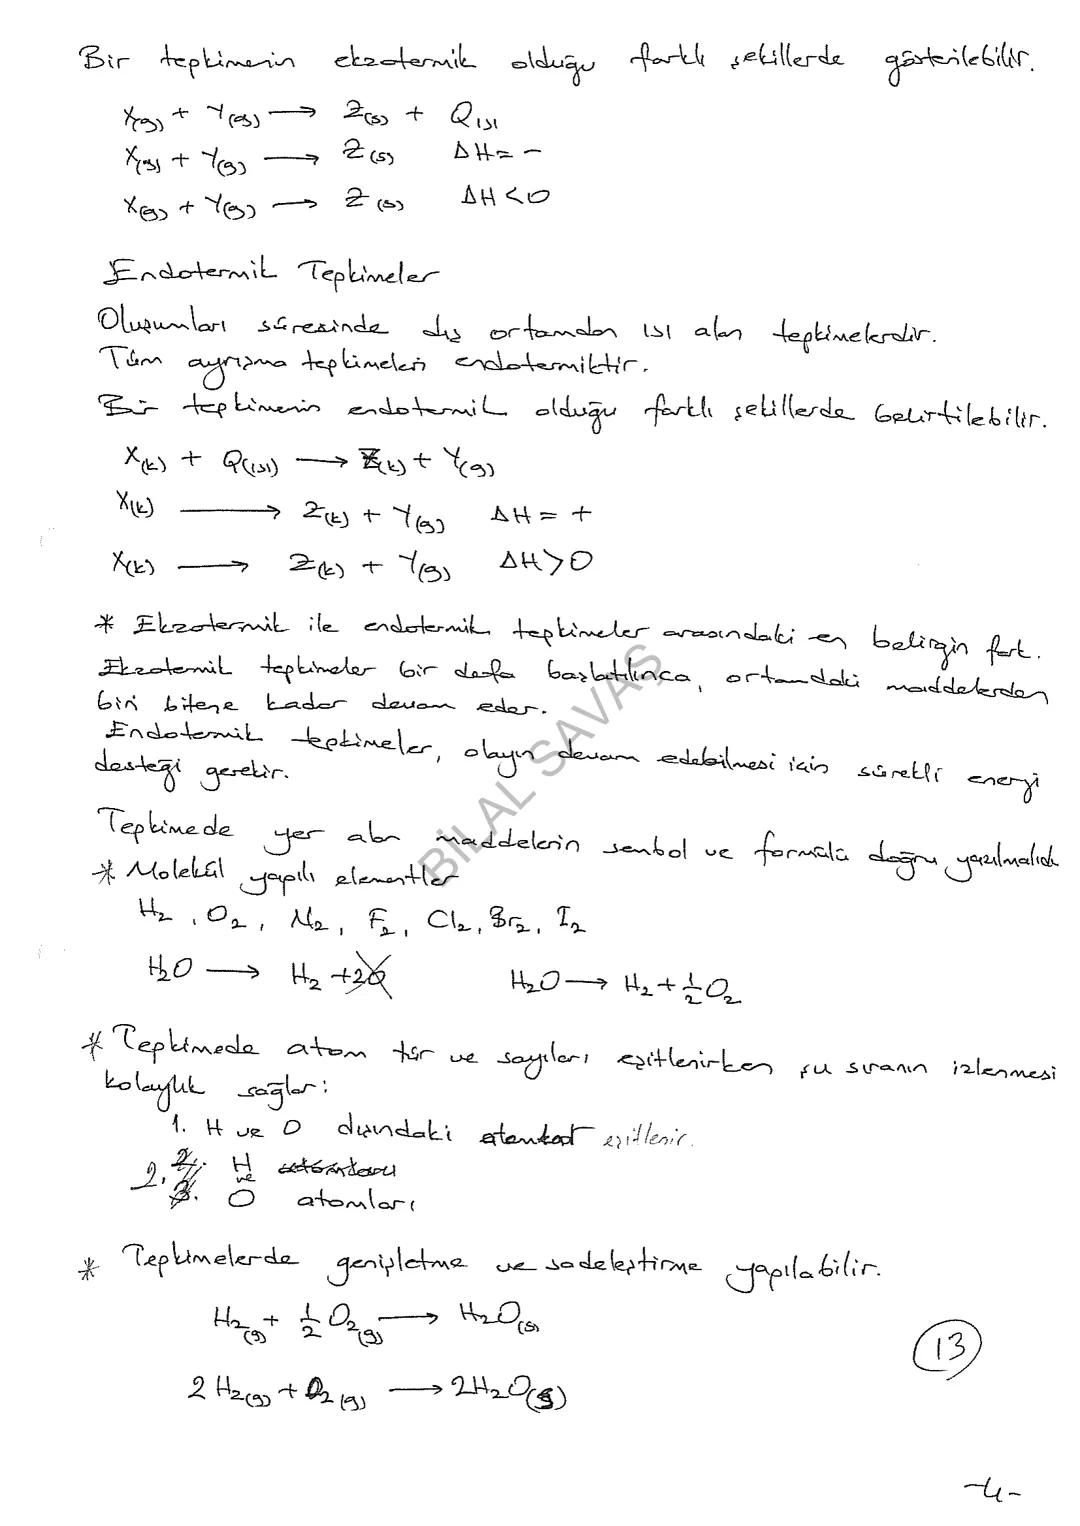 Bir tepkimenin ekzotermik olduğu farklı şekillerde gösterilebilir.
X(g) + Y(g) → Z(s) + Qısı
X(g) + Y(g) → Z(s) ΔH = -
X(g) + Y(g) → Z(s) ΔH < 0
Endotermik Tepkimeler
Oluşumları süresinde dış ortamdan ısı alan tepkimelerdir.
Tüm ayrışma tepkimeleri endotermiktir.
Bir tepkimenin endotermik olduğu farklı şekillerde belirtilebilir.
X(k) + Q(ısı) → Z(k) + Y(g)
X(k) → Z(k) + Y(g) ΔH = +
X(k) → Z(k) + Y(g) ΔH > 0
* Ekzotermik ile endotermik tepkimeler arasındaki en belirgin fark.
Ekzotermik tepkimeler bir defa başlatılınca, ortamdaki maddelerden
biri bitene kadar devam eder.
Endotermik tepkimeler, olayın devam edebilmesi için sürekli enerji
desteği gerekir.
Tepkimede yer alan maddelerin sembol ve formülü doğru yazılmalıdı
* Molekül yapılı elementler
H₂, O₂, N₂, F₂, Cl₂, Br₂, I₂
H₂O → H₂ + 2O H₂O → H₂ + ½O₂
* Tepkimede atom tür ve sayıları eşitlenirken şu sıranın izlenmesi
kolaylık sağlar:
1. H ve O dışındaki atomlar eşitlenir.
2. H ve
O atomları
* Tepkimelerde genişletme ve sadeleştirme yapılabilir.
H₂(g) + ½ O₂(g) → H₂O(s)
2H₂(g) + O₂(g) → 2H₂O(s)
13
-4-
BİLAL SAVAŞ